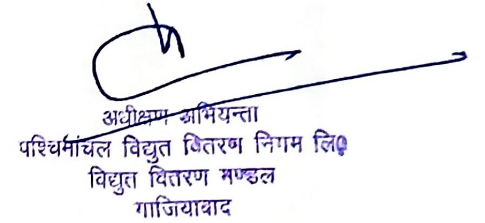 अधीक्षण अभियन्ता
पश्चिमांचल विद्युत वितरण निगम लि०
विद्युत वितरण मण्डल
गाजियाबाद